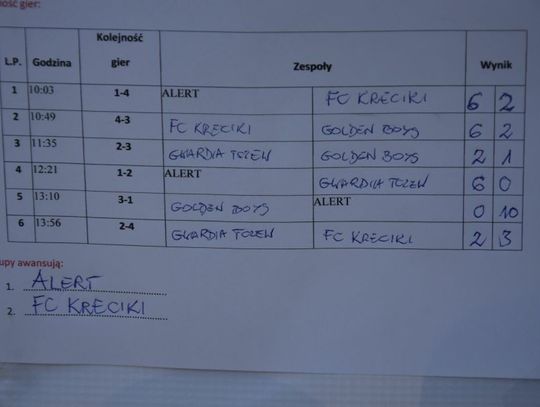 ność gier:
L.P. Godzina Kolejność gier Zespoły Wynik
1 10:03 1-4 ALERT FC KRECIKI 6 2
2 10:49 4-3 FC KRECIKI GOLDEN BOYS 6 2
3 11:35 2-3 GWARDIA TCZEW GOLDEN BOYS 2 1
4 12:21 1-2 ALERT GWARDIA TCZEW 6 0
5 13:10 3-1 GOLDEN BOYS ALERT 0 10
6 13:56 2-4 GWARDIA TCZEW FC KRECIKI 2 3
upy awansują:
1. ALERT
2. FC KRECIKI